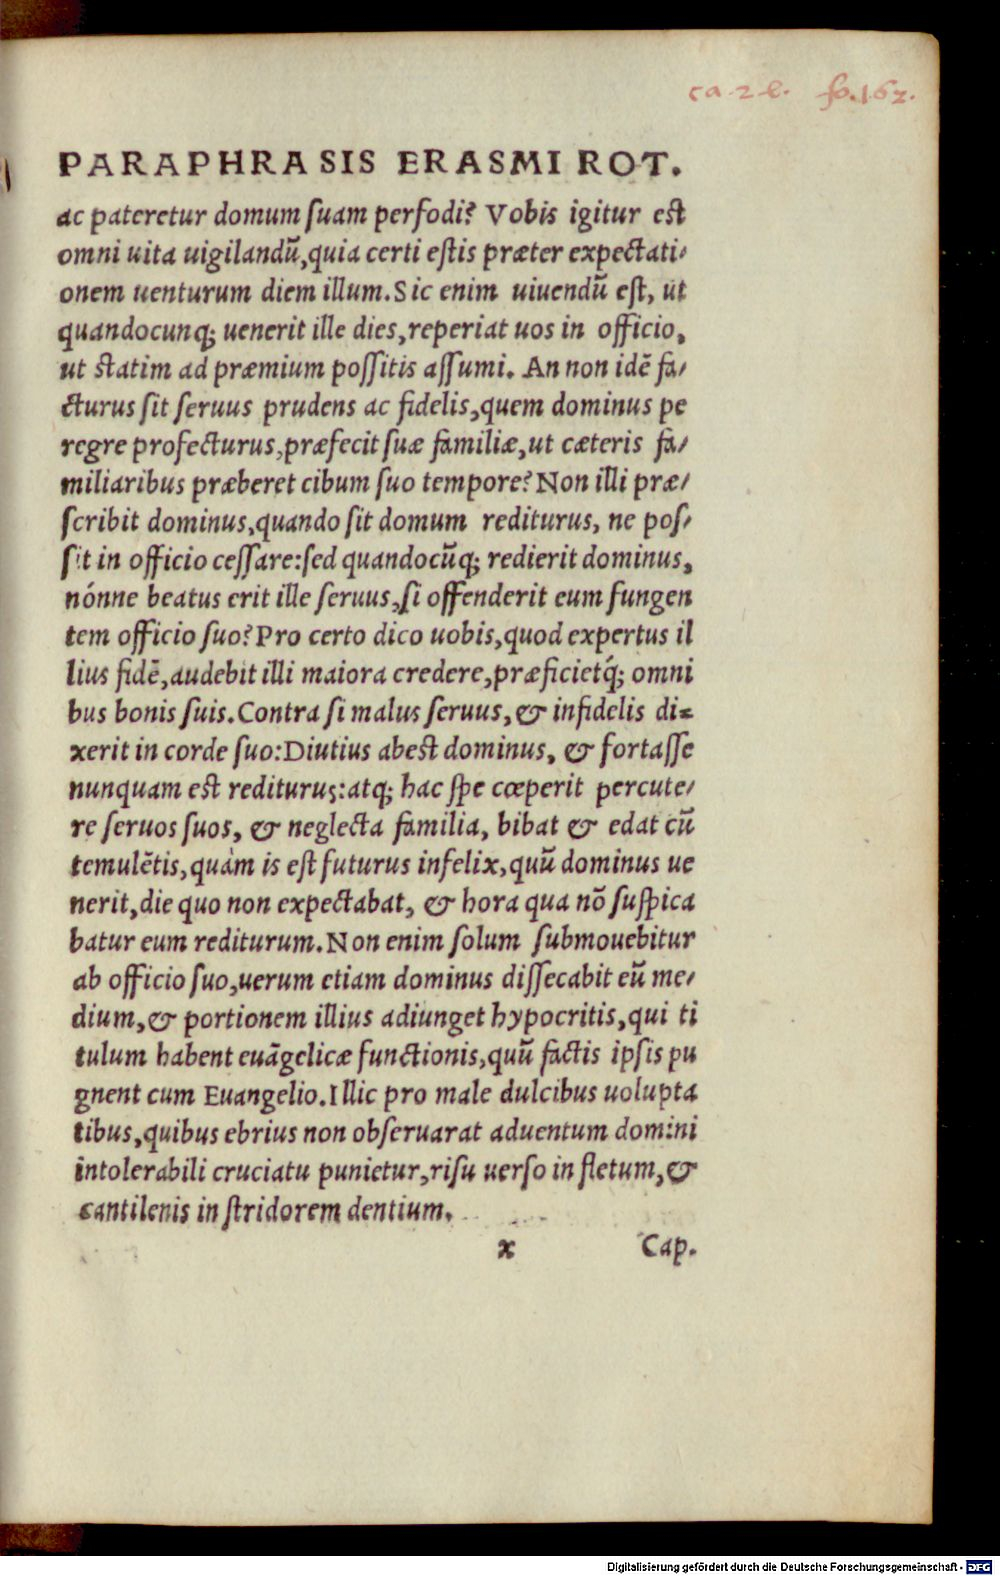 ca. 2 l. fo. 162.
PARAPHRASIS ERASMI ROT.
ac pateretur domum ſuam perfodi? Vobis igitur eſt
omni uita uigilandū, quia certi eſtis præter expectati⸗
onem uenturum diem illum. Sic enim uiuendū eſt, ut
quandocunq; uenerit ille dies, reperiat uos in officio,
ut ſtatim ad præmium poſſitis aſſumi. An non idē fa⸗
cturus ſit ſeruus prudens ac fidelis, quem dominus pe
regre profecturus, præfecit ſuæ familiæ, ut cæteris fa⸗
miliaribus præberet cibum ſuo tempore? Non illi præ⸗
ſcribit dominus, quando ſit domum rediturus, ne poſ⸗
ſit in officio ceſſare: ſed quandocūq; redierit dominus,
nónne beatus erit ille ſeruus, ſi offenderit eum fungen
tem officio ſuo? Pro certo dico uobis, quod expertus il
lius fidē, audebit illi maiora credere, præficietq́; omni
bus bonis ſuis. Contra ſi malus ſeruus, & infidelis di⸗
xerit in corde ſuo: Diutius abeſt dominus, & fortaſſe
nunquam eſt rediturus: atq; hac ſpe cœperit percute⸗
re ſeruos ſuos, & neglecta familia, bibat & edat cū
temulētis, quàm is eſt futurus infelix, quū dominus ue
nerit, die quo non expectabat, & hora qua nō ſuſpica
batur eum rediturum. Non enim ſolum ſubmouebitur
ab officio ſuo, uerum etiam dominus diſſecabit eū me⸗
dium, & portionem illius adiunget hypocritis, qui ti
tulum habent euāgelicæ functionis, quū factis ipſis pu
gnent cum Euangelio. Illic pro male dulcibus uolupta
tibus, quibus ebrius non obſeruarat aduentum domini
intolerabili cruciatu punietur, riſu uerſo in fletum, &
cantilenis in ſtridorem dentium.
x Cap.
Digitalisierung gefördert durch die Deutsche Forschungsgemeinschaft - DFG